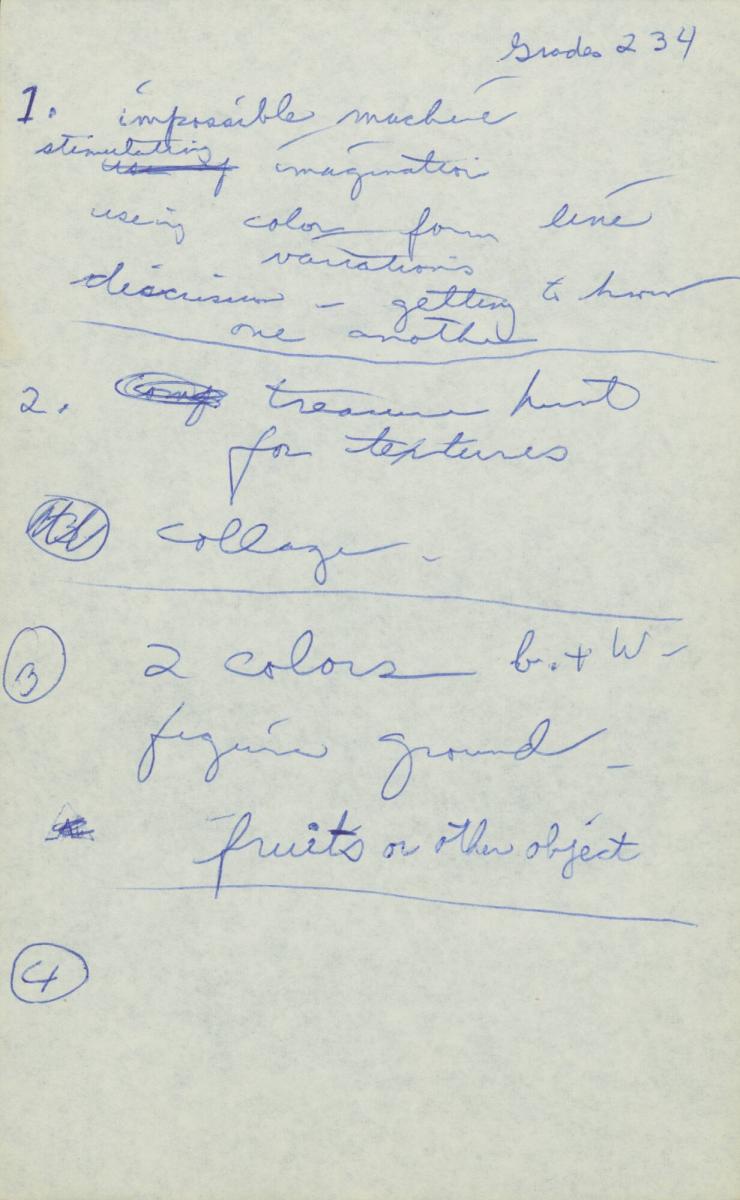 Grades 2 3 4
1. impossible machine
stimulating
use of imagination
using color form line
variations
discussion - getting to know
one another
2. Comp treasure hunt
for textures
collage -
3 2 colors b. + W -
figure ground -
fruits or other object
4